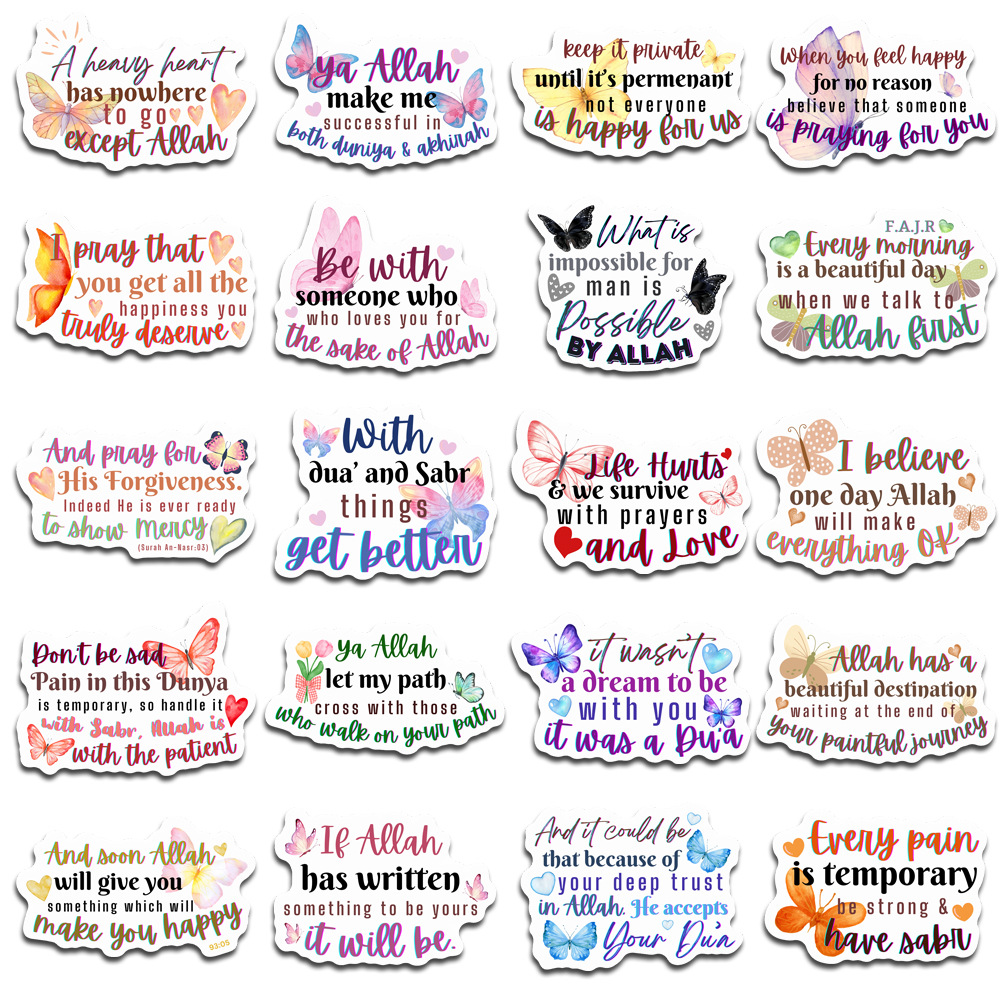 A heavy heart
has nowhere
to go
except Allah
ya Allah
make me
successful in
both duniya & akhirah
keep it private
until it's permenant
not everyone
is happy for us
When you feel happy
for no reason
believe that someone
is praying for you
I pray that
you get all the
happiness you
truly deserve
Be with
someone who
who loves you for
the sake of Allah
What is
impossible for
man is
Possible
BY ALLAH
F.A.J.R
Every morning
is a beautiful day
when we talk to
Allah first
And pray for
His Forgiveness.
Indeed He is ever ready
to show Mercy
(Surah An-Nasr:03)
With
dua' and Sabr
things
get better
Life Hurts
& we survive
with prayers
and Love
I believe
one day Allah
will make
everything OK
Don't be sad
Pain in this Dunya
is temporary, so handle it
with Sabr, Allah is
with the patient
ya Allah
let my path
cross with those
who walk on your path
it wasn't
a dream to be
with you
it was a Du'a
Allah has a
beautiful destination
waiting at the end of
your paintful journey
And soon Allah
will give you
something which will
make you happy
93:05
If Allah
has written
something to be yours
it will be.
And it could be
that because of
your deep trust
in Allah. He accepts
Your Du'a
Every pain
is temporary
be strong &
have sabr